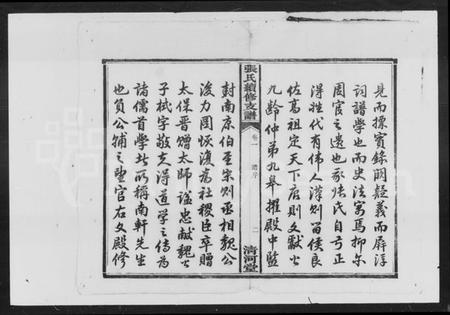 見而摭實錄闕疑義而屏浮
詞譜學也而史法寓焉抑亦
周官之遺也豕張氏自弓正
得姓代有偉人漢則留侯良
佐高祖定天下唐則文獻公
九齡仲弟九皋擢殿中監
張氏續修支譜
卷一
譜序
二
清河堂
封南康伯至宋則丞相魏公
浚力圖恢復為社稷臣卒贈
太保晋贈太師謚忠獻魏公
子栻字敬夫得道學之傳為
諸儒首學者所稱南軒先生
也負公輔之望官右文殿修